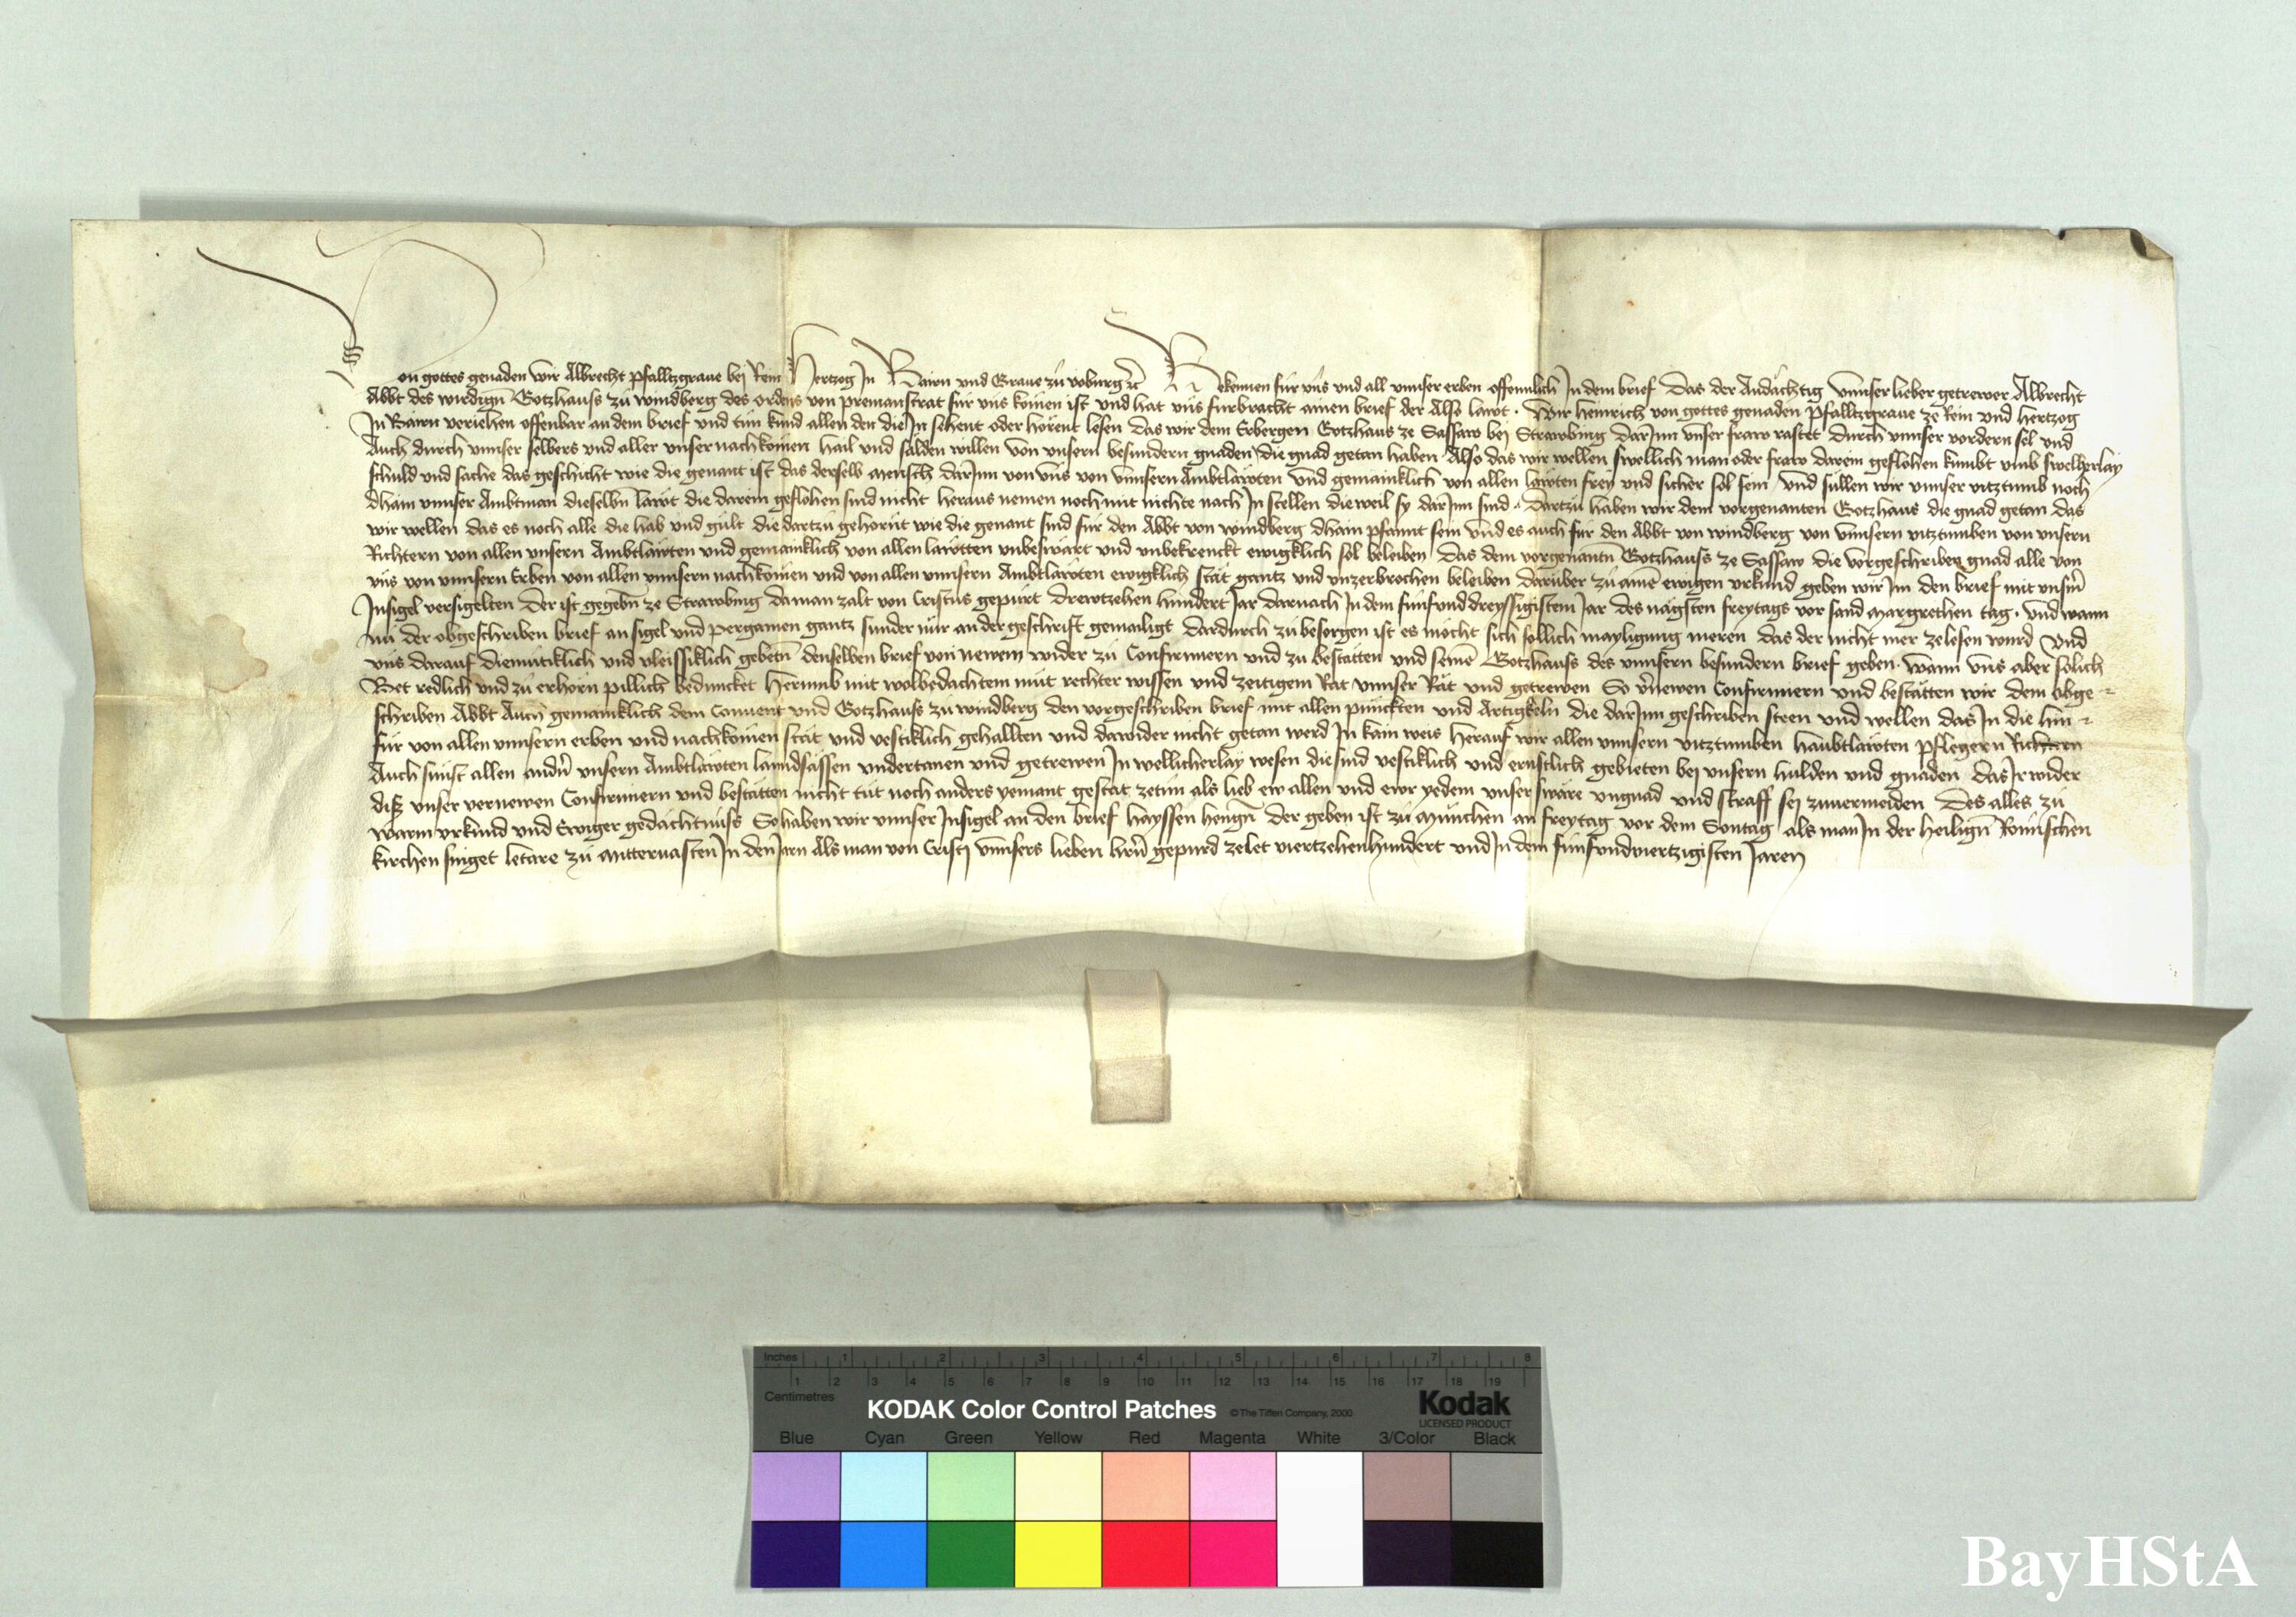 Von gottes genaden wir Albrecht Pfalltzgraue bej Rein Hertzog Jn Bairn vnd Graue zů voburg ꝛc Bekennen für vns vnd all vnnser erben offennlich Jn dem brief Das der Andächtig vnnser lieber getrewer Albrecht
Abbt des wirdign Gotzhauss zů windberg des ordens von premanstrat für vns komen ist vnd hat vns fürbracht ainen brief der Also lawt · Wir heinrich von gottes genaden Pfalltzgraue ze Rein vnd hertzog
Jn Bairn veriehen offenbar an dem brief vnd tůn kund allen den die Jn sehent oder hörent lesen das wir dem Erbergen Gotzhaus ze Sassaw bej Strawbing darJnn vnser fraw rastet durch vnnser vordern sel vnd
Auch durch vnnser selbers vnd aller vnser nachkomen hail vnd sälden willen von vnsern besundern gnaden die gnad getan haben Also das wir wellen swellich man oder fraw darein geflohen kumbt vmb swelherlay
schuld vnd sache das geschicht wie die genant ist das derselb mensch darJnn von vns von vnnsern Ambtläwten vnd gemainklich von allen läwten frey vnd sicher sol sein vnd süllen wir vnnser vitztumb noch
dhain vnnser Ambtman dieselbn läwt die darein geflohen sind nicht heraus nemen noch mit nichte nach Jn stellen dieweil sy darJnn sind · Dartzů haben wir dem vorgenanten Gotzhaus die gnad getan das
wir wellen das es noch alle die hab vnd gült die dartzů gehörnt wie die genant sind für den Abbt von windberg dhain pfannt sein vnd es auch für den Abbt von windberg von vnnsern vitztumben von vnsern
Richtern von allen vnsern Ambtläwten vnd gemainklich von allen läwtten vnbeswärt vnd vnbekrenckt ewigklich sol beleiben Das dem vorgenantn Gotzhauss ze Sassaw die vorgeschriben gnad alle von
vns von vnnsern Erben von allen vnnsern nachkomen vnd von allen vnnsern Ambtläwten ewigklich stät gantz vnd vnzerbrochen beleiben darüber zů aine ewigen vrkund geben wir Jm den brief mit vnsm
Jnsigel versigelten Der ist gegebn ze Strawbing da man zalt von Cristus gepürt Drewtzehen hundert Jar darnach Jn dem fünfvnddreyssigistem Jar des nägsten freytags vor sand Margrethen tag · vnd wann
nu der obgeschriben brief an sigel vnd pergamen gantz sunder nür an der geschrift gemailigt dardurch zů besorgen ist es möcht sich söllich mayligung meren das der nicht mer ze lesen wurd vnd
vns darauf diemütiklich vnd vleissiklich gebetn denselben brief von newem wider zu Confirmiern vnd zu bestätten vnd seine Gotzhauss des vnnsern besundern brief geben · wann vns aber sölich
Bet redlich vnd zů erhörn pillich beduncket Hierumb mit wolbedachtem můt rechter wissen vnd zeitigem Rat vnnser Rät vnd getrewen So vernewen Confirmiern vnd bestätten wir dem obge-
schriben Abbt Auch gemainklich dem Conuent vnd Gotzhauss zu windberg den vorgeschriben brief mit allen punckten vnd Artigkeln die darJnn geschriben steen vnd wellen das Jn die hin-
für von allen vnnsern erben vnd nachkomen stät vnd vestiklich gehallten vnd dawider nicht getan werd Jn kain weis Herauf wir allen vnnsern vitztumben haubtläwten pflegern Richtern
Auch sunst allen andn vnsern Ambtläwten lanndsässen vndertanen vnd getrewen Jn wellicherlay wesen die sind vestiklich vnd ernstlich gebieten bej vnsern hulden vnd gnaden das Jr wider
diss vnser vernewen Confirmiern vnd bestätten nicht tüt noch anders yemant gestat zetůn als lieb ew allen vnd ewr yedem vnser swäre vngnad vnd straff sej zuuermeiden Des alles zů
warm vrkund vnd Ewiger gedächtnüss So haben wir vnnser Jnsigel an den brief hayssen hengn Der geben ist zů München an freytag vor dem Sontag als man Jn der heilign Römischen
kirchen singet letare zů mitteruasten Jn den Jarn Als man von Cristj vnnsers lieben hrn gepurd zelet viertzehenhundert vnd Jn dem fünfvndviertzigisten Jaren
Inches 1 2 3 4 5 6 7 8
1 2 3 4 5 6 7 8 9 10 11 12 13 14 15 16 17 18 19
Centimetres
KODAK Color Control Patches © The Tiffen Company, 2000 Kodak
LICENSED PRODUCT
Blue Cyan Green Yellow Red Magenta White 3/Color Black
BayHStA